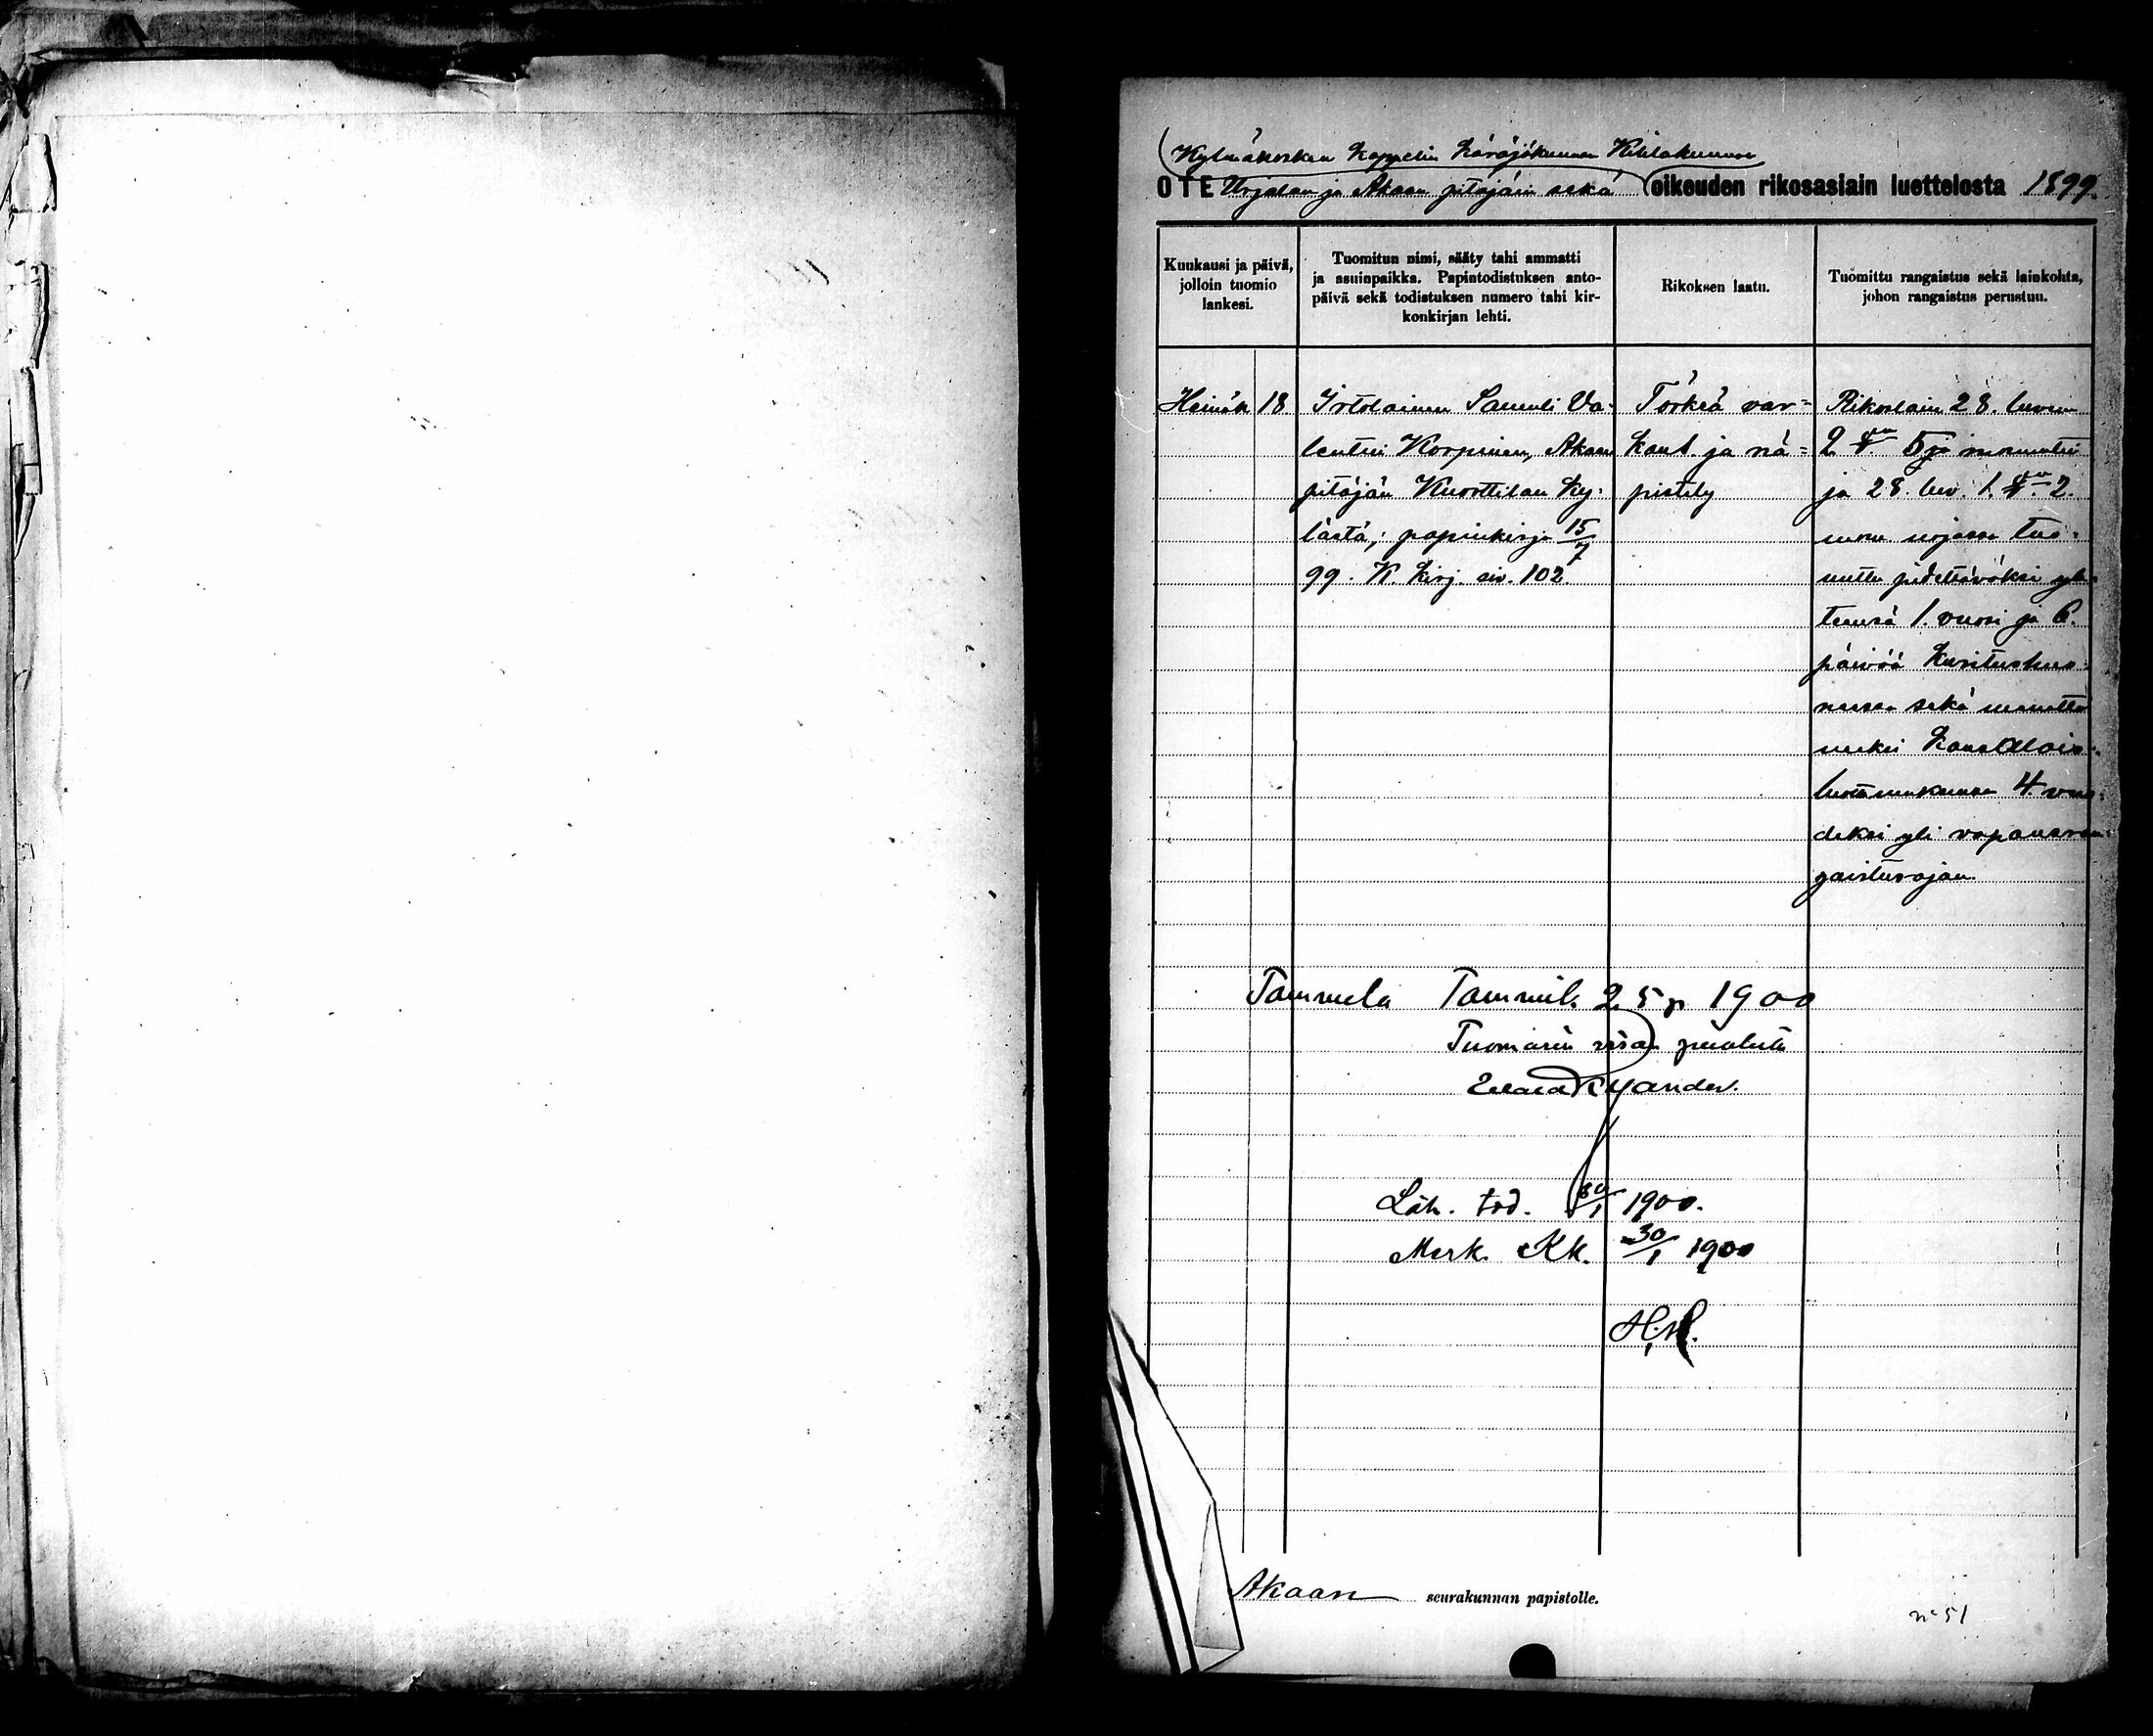 Kylmäkosken kappelin käräjäkunnan Kihlakunnan
OTE Urjalan ja Akaan pitäjäin sekä oikeuden rikosasiain luettelosta 1899.
Kuukausi ja päivä, jolloin tuomio lankesi.
Tuomitun nimi, sääty tahi ammatti ja asuinpaikka. Papintodistuksen anto-päivä sekä todistuksen numero tahi kir-konkirjan lehti.
Rikoksen laatu.
Tuomittu rangaistus sekä lainkohta, johon rangaistus perustuu.
Heinäk 18
Irtolainen Samuli Va-
lentin Korpinen, Akaan
pitäjän Kuorttilan ky-
lästä; papinkirja 15/7
99. K. kirj. siv. 102.
Törkeä var=
kaus ja nä=
pistely
Rikoslain 28. luvun
2 §:n 5 ja momentin
ja 28. luv. 1. §:n 2.
mom nojassa tuo-
mittu pidettäväksi yh-
teensä 1. vuosi ja 6.
päivää kuritushuo-
neessa sekä menettä-
neeksi kansalais-
luottamuksensa 4. vuo-
deksi yli vapausran-
gaistusajan.
Tammela Tammik. 25 p 1900
Tuomarin viran puolesta
Kyander.
Läh. tod. 30/1 1900.
Merk. Kk. 30/1 1900
H.H.
Akaan seurakunnan papistolle.
n:o 51